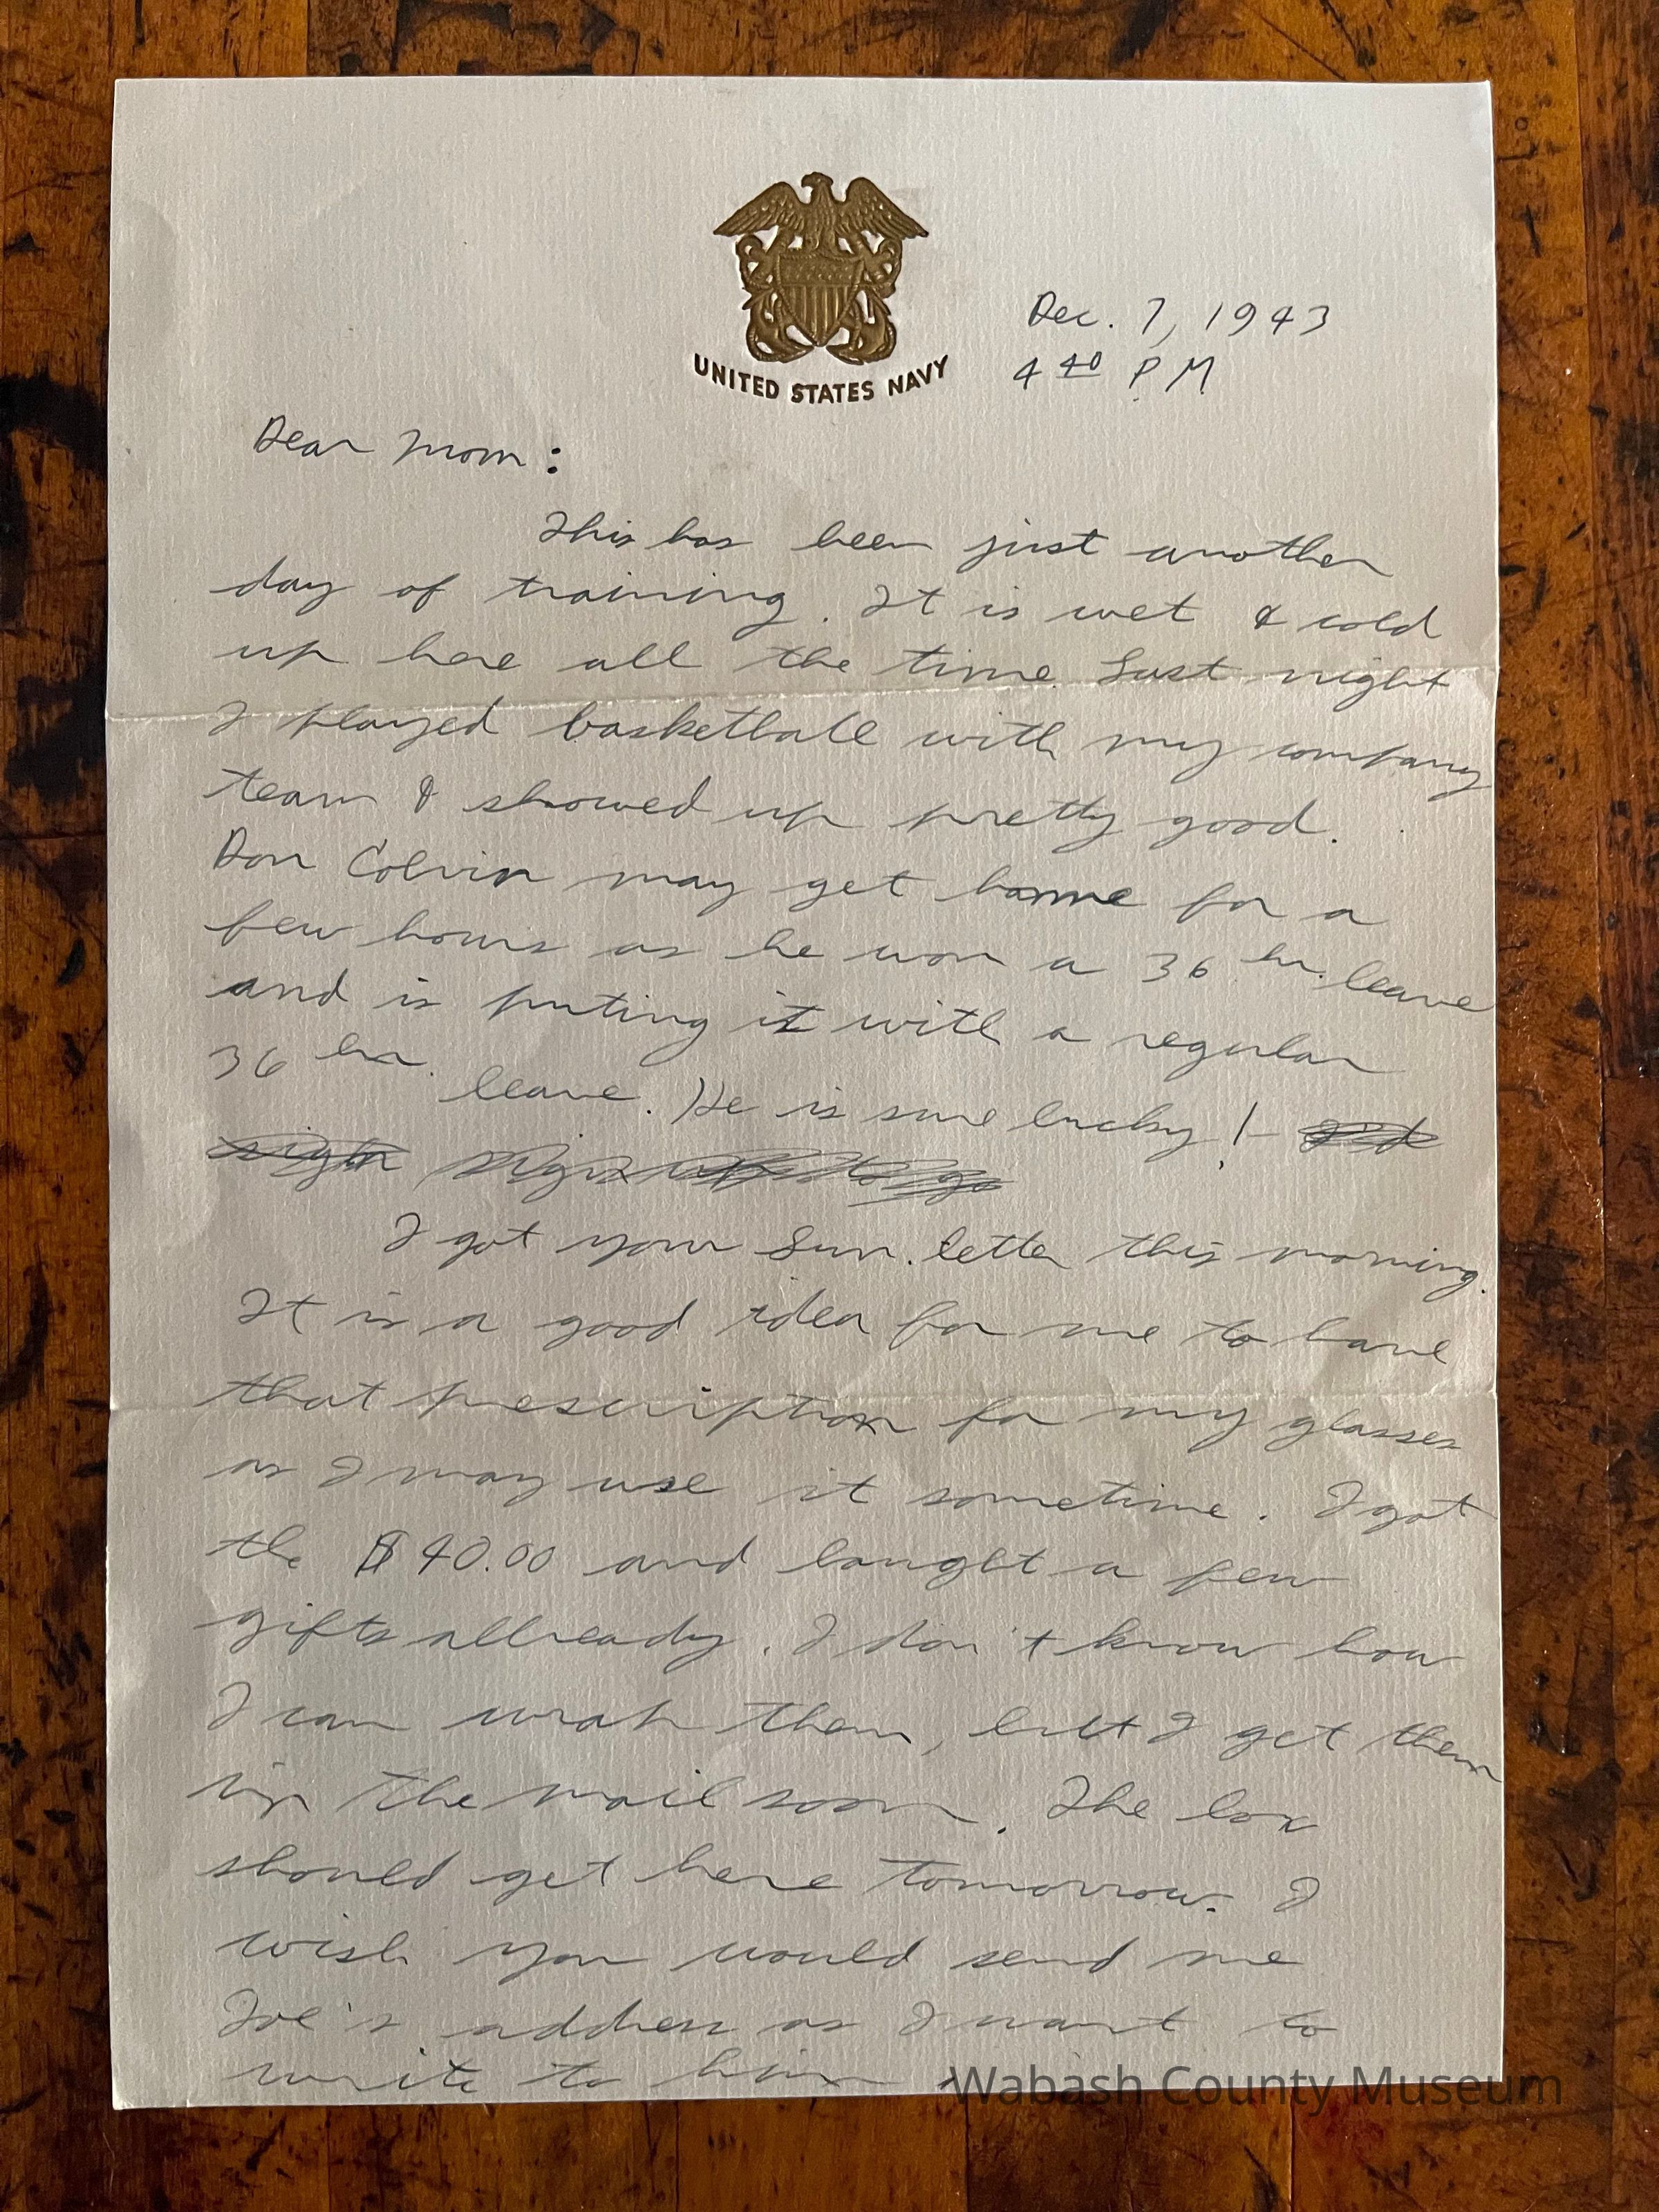 UNITED STATES NAVY
Dec. 7, 1943
4 40 P.M
Dear Mom:
This has been just another
day of training. It is wet & cold
up here all the time. Last night
I played basketball with my company
team & showed up pretty good.
Don Colvin may get home for a
few hours as he won a 36 hr. leave
and is puting it with a regular
36 hr. leave. He is sure lucky!
I got your Sun. letter this morning.
It is a good idea for me to have
that prescription for my glasses
as I may use it sometime. I got
the $40.00 and bought a few
gifts allready. I don't know how
I can wrap them, but I get them
in the mail soon. The box
should get here tomorrow. I
wish you would send me
Joe's address as I want to
write to him
Wabash County Museum